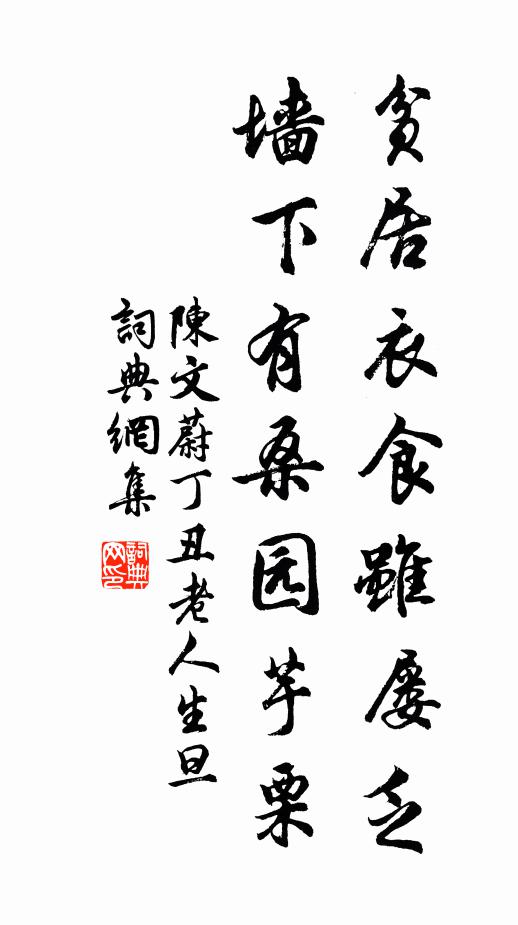 貧居衣食雖屡乏
墙下有桑园芋栗
陳文蔚丁丑老人生旦
詞典網集
詞典网印